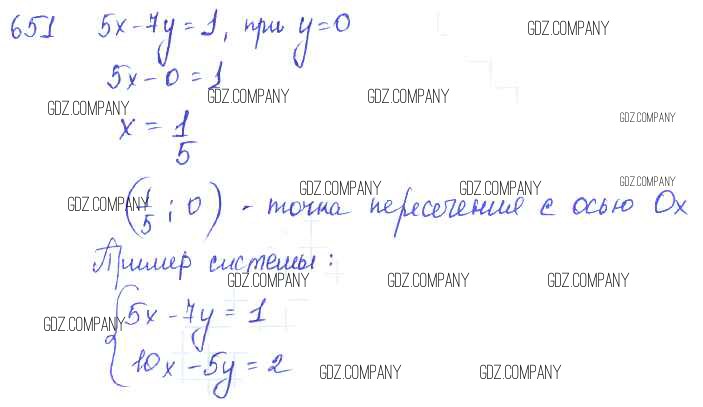 651 5x-7y=1, при y=0 GDZ.COMPANY
5x-0=1
GDZ.COMPANY GDZ.COMPANY GDZ.COMPANY
x = 1/5 GDZ.COMPANY
GDZ.COMPANY GDZ.COMPANY GDZ.COMPANY GDZ.COMPANY
(1/5; 0) - точка пересечения с осью Ox
Пример системы:
GDZ.COMPANY GDZ.COMPANY GDZ.COMPANY
{5x-7y=1
GDZ.COMPANY
10x-5y=2
GDZ.COMPANY GDZ.COMPANY